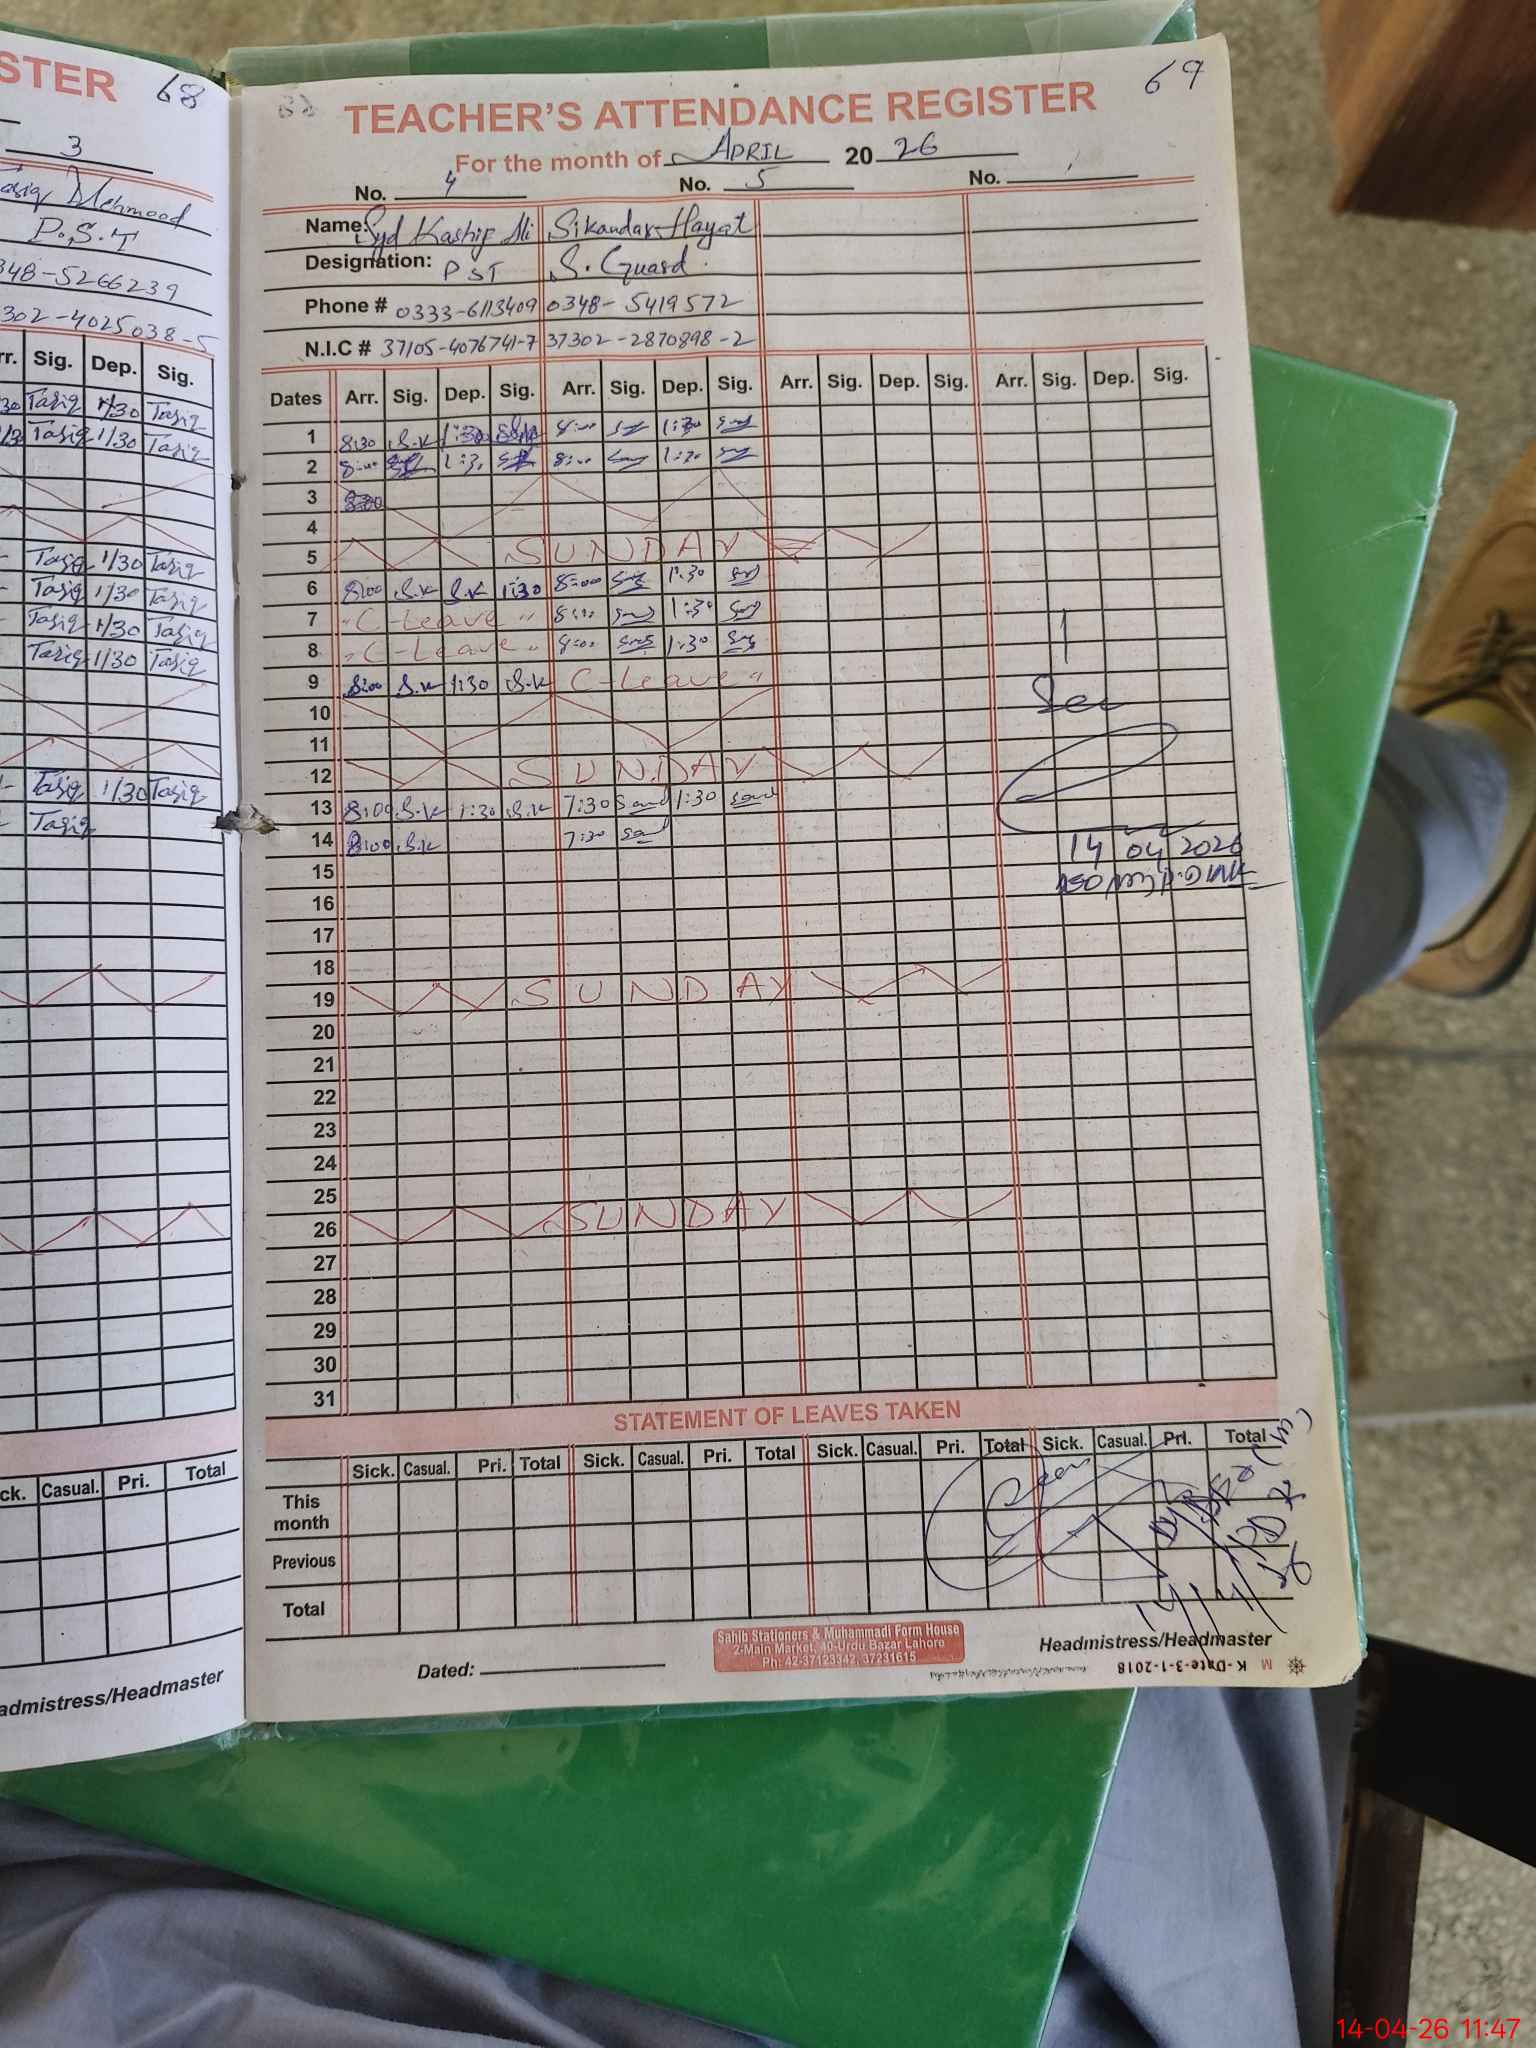 STER 68
3
Tariq Mehmood
P.S.T
348-5266239
302-4025038-5
rr. Sig. Dep. Sig.
30 Tariq 1/30 Tariq
1/3 Tariq 1/30 Tariq
Tariq 1/30 Tariq
Tariq 1/30 Tariq
Tariq 1/30 Tariq
Tariq 1/30 Tariq
Tariq 1/30 Tariq
Tariq
ck. Casual. Pri. Total
admistress/Headmaster
69
TEACHER'S ATTENDANCE REGISTER
For the month of APRIL 20 26
No. 4 No. 5 No.
Name: Syd Kashif Ali Sikandar Hayat
Designation: PST S. Guard.
Phone # 0333-6113409 0348-5419572
N.I.C # 37105-4076741-7 37302-2870898-2
Dates Arr. Sig. Dep. Sig. Arr. Sig. Dep. Sig. Arr. Sig. Dep. Sig. Arr. Sig. Dep. Sig.
1 8:30 S.K 1:30 1:30
2 8:00 1:30 8:00 1:30
3 8:00
4
5 SUNDAY
6 8:00 S.K S.K 1:30 8:00 1:30
7 "C-Leave" 8:00 1:30
8 "C-Leave" 1:30
9 8:00 S.K 1:30 S.K C-Leave"
10
11
12 SUNDAY
13 8:00 S.K 1:30 S.K 7:30 1:30
14 8:00 S.K 7:30
15
16
17
18
19 SUNDAY
20
21
22
23
24
25
26 SUNDAY
27
28
29
30
31
14 04 2026
STATEMENT OF LEAVES TAKEN
Sick. Casual. Pri. Total Sick. Casual. Pri. Total Sick. Casual. Pri. Total Sick. Casual. Pri. Total
This month
Previous
Total
Dated:
Sahib Stationers & Muhammadi Form House
2-Main Market, 40-Urdu Bazar Lahore
Ph: 42-37123342, 37231615
Headmistress/Headmaster
M K-Date-3-1-2018
14-04-26 11:47